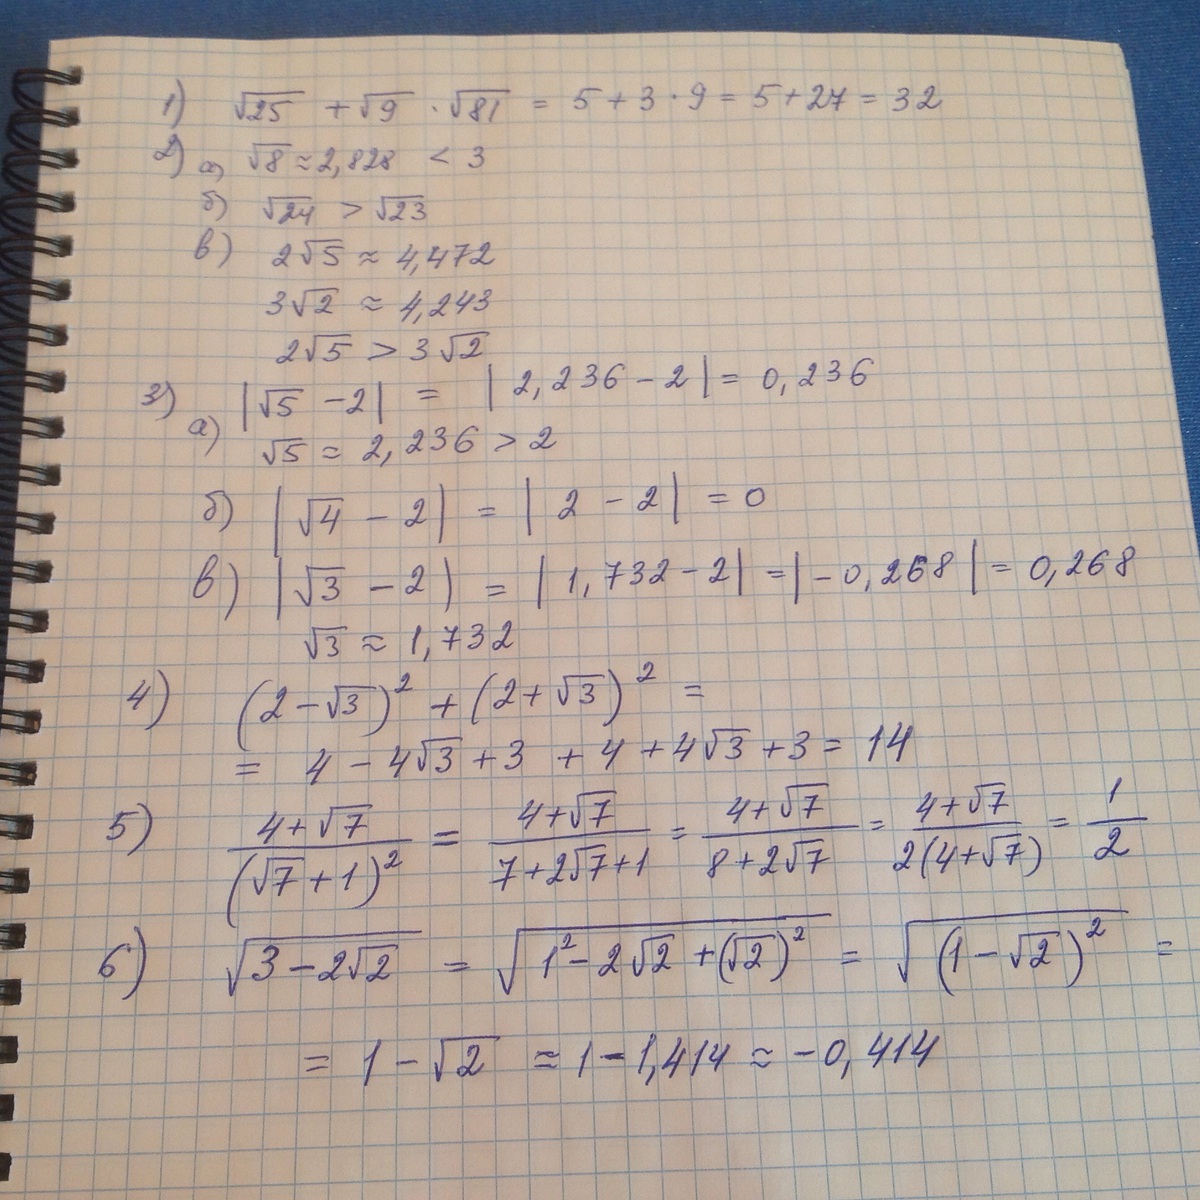 1) √25 + √9 · √81 = 5 + 3 · 9 = 5 + 27 = 32
2) а) √8 ≈ 2,828 < 3
б) √24 > √23
в) 2√5 ≈ 4,472
3√2 ≈ 4,243
2√5 > 3√2
3) |√5 - 2| = |2,236 - 2| = 0,236
а) √5 = 2,236 > 2
б) |√4 - 2| = |2 - 2| = 0
в) |√3 - 2) = |1,732 - 2| = |-0,268| = 0,268
√3 ≈ 1,732
4) (2 - √3)² + (2 + √3)² =
= 4 - 4√3 + 3 + 4 + 4√3 + 3 = 14
5) (4+√7)/(√7+1)² = (4+√7)/(7+2√7+1) = (4+√7)/(8+2√7) = (4+√7)/(2(4+√7)) = 1/2
6) √(3 - 2√2) = √(1² - 2√2 + (√2)²) = √((1 - √2)²) =
= 1 - √2 ≈ 1 - 1,414 ≈ -0,414